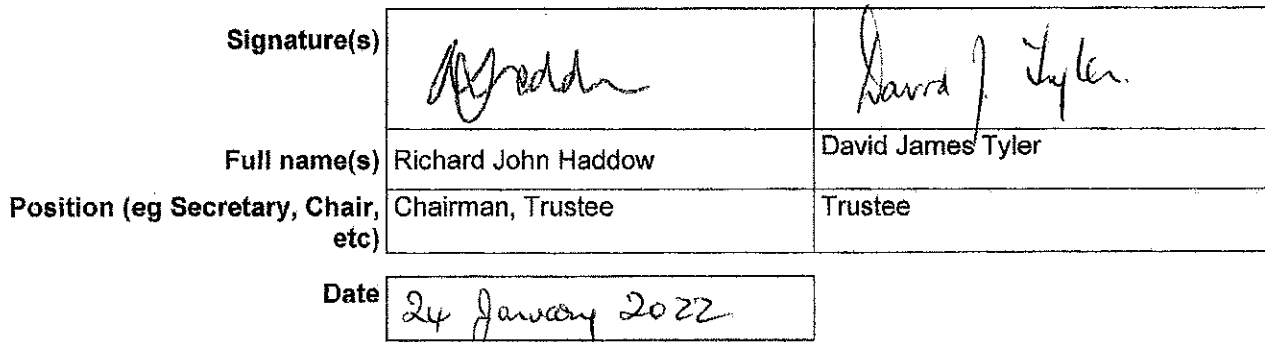 Signature(s)
David J. Tyler.
Full name(s) Richard John Haddow David James Tyler
Position (eg Secretary, Chair, etc) Chairman, Trustee Trustee
Date 24 January 2022